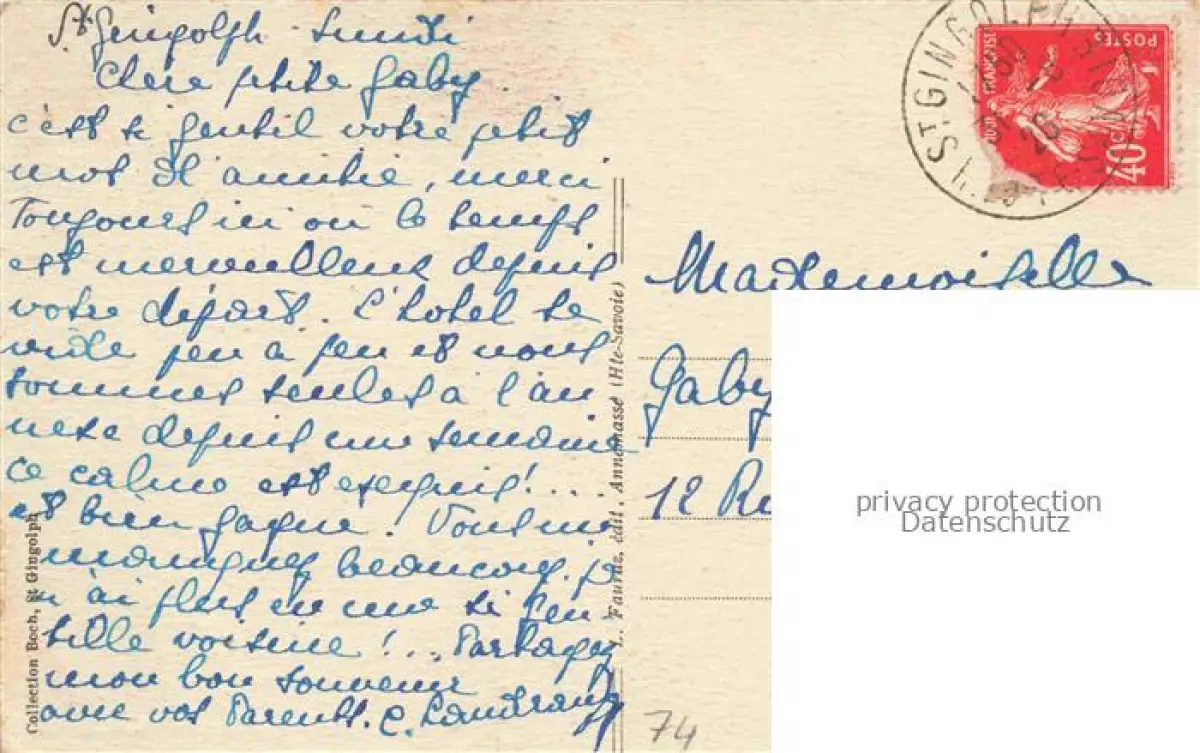 St Gingolph Lundi
Chère petite Gaby
c'est si gentil votre petit
mot d'amitié, merci
Toujours ici où le temps
est merveilleux depuis
votre départ. L'hotel se
vide peu à peu et nous
sommes seules à l'an
nexe depuis une semaine
ce calme est exquis!....
est bien gagné! Vous me
manquez beaucoup. je
n'ai plus en une si gen
tille voisine!... Partagez
mon bon souvenir
avec vos Parents. C.
Collection Boch, St Gingolph
L. Fauraz, édit., Annemasse (Hte-Savoie)
ST GINGOLPH
POSTES
40c
Mademoiselle
Gaby
12 Ru
privacy protection
Datenschutz
74